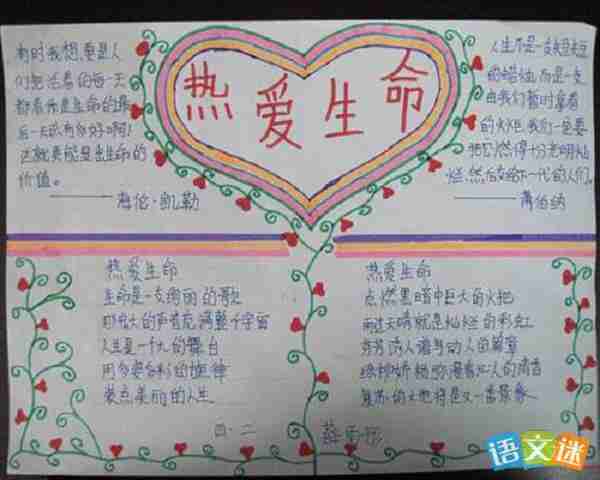 热爱生命
有时我想,要是人
们把活着的每一天
都看作是生命的最
后一天该有多好啊!
这就更能显出生命的
价值。
——海伦·凯勒
人生不是一支短短
的蜡烛,而是一支
由我们暂时拿着
的火炬,我们一定要
把它燃得十分光明灿
烂,然后交给下一代的人们。
——萧伯纳
热爱生命
生命是一支绚丽的歌
时代的声音充满整个宇宙
人生是一个大的舞台
用多姿多彩的旋律
装点美丽的人生
热爱生命
点燃黑暗中巨大的火把
雨过天晴就是灿烂的彩虹
芬芳诱人谱写动人的篇章
的大地将是又一番景象
四·二
语文迷